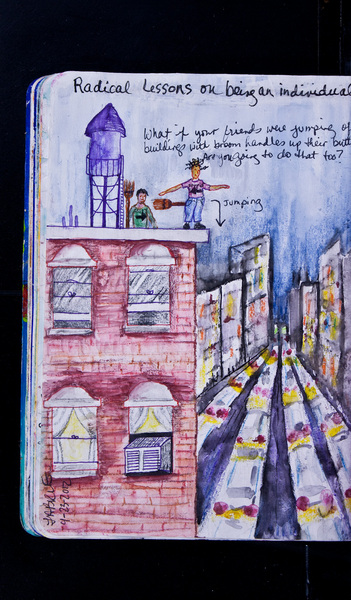 Radical Lessons on being an individual
What if your friends were jumping of
buildings with broom handles up their butt
Are you going to do that too?
Jumping
4-23-202